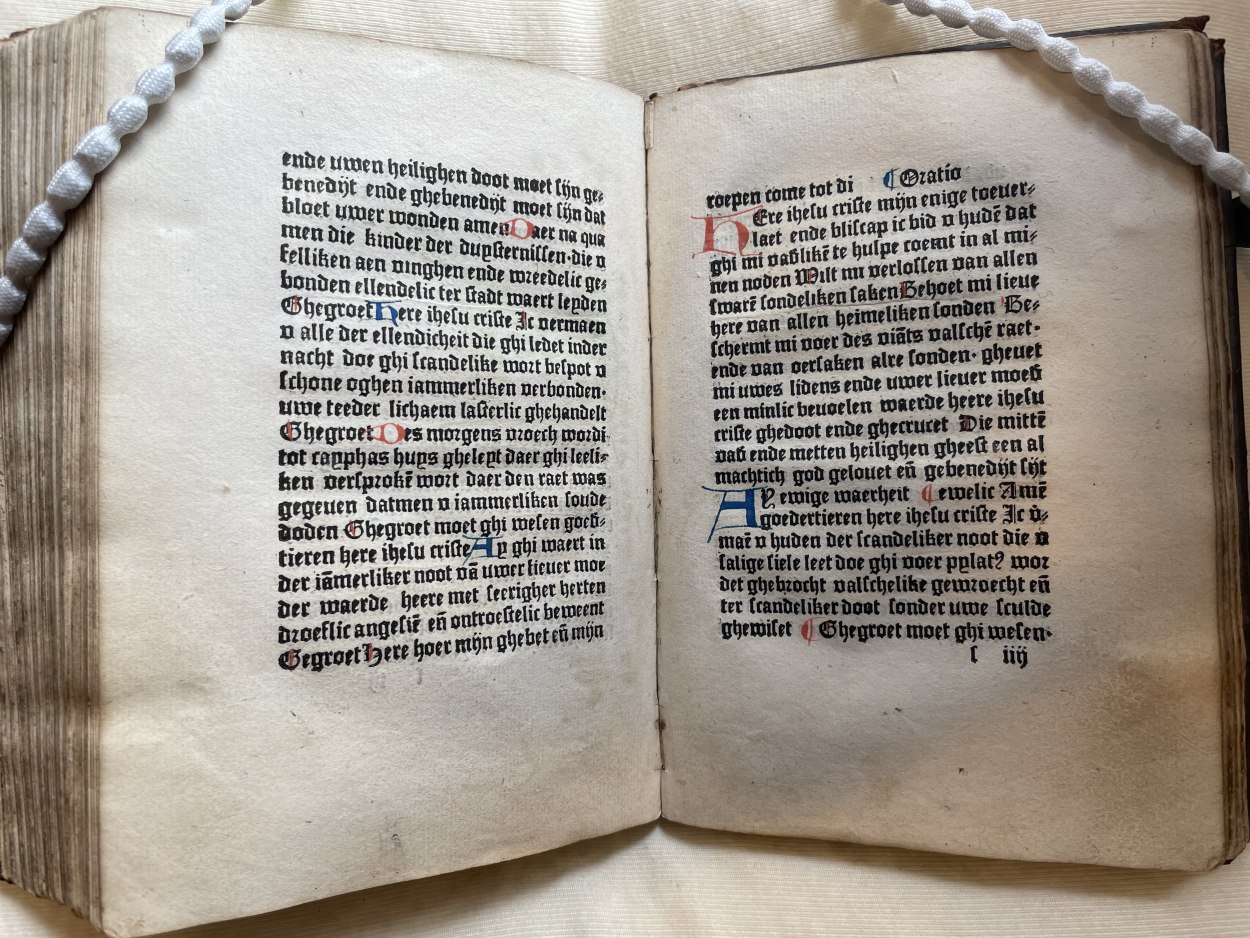 ende uwen heilighen doot moet sijn ge-
benedijt ende ghebenedijt moet sijn dat
bloet uwer wonden amen Daer na qua
men die kinder der duysternissen·die v
felliken aen vinghen ende wreedelic ge-
bonden ellendelic ter stadt waert leyden
Ghegroet Here ihesu criste Ic vermaen
v alle der ellendicheit die ghi ledet inder
nacht doe ghi scandelike wort bespot v
schone oghen iammerliken verbonden·
uwe teeder lichaem lasterlic ghehandelt
Ghegroet Des morgens vroech wordi
tot cayphas huys gheleyt daer ghi leeli-
ken versprokē wort daer den raet was
gegeuen datmen v iammerliken soude
doden Ghegroet moet ghi wesen goed-
tieren here ihesu criste Ay ghi waert in
der iāmerliker noot vā uwer lieuer moe
der waerde heere met seerigher herten
droeflic angesiē eñ ontroestelic beweent
Gegroet Here hoer mijn ghebet eñ mijn
roepen come tot di ¶ Oratio
HEre ihesu criste mijn enige toeuer-
laet ende bliscap ic bid v hudē dat
ghi mi vadlikē te hulpe coemt in al mi-
nen noden Wilt mi verlossen van allen
swarē sondeliken saken Behoet mi lieue
here van allen heimeliken sonden Be-
schermt mi voer des viāts valschē raet·
ende van oersaken alre sonden· gheuet
mi uwes lidens ende uwer lieuer moed
een minlic beuoelen waerde heere ihesu
criste ghedoot ende ghecrucet Die mittē
vad ende metten heilighen gheest een al
machtich god gelouet eñ gebenedijt sijt
AY ewige waerheit ¶ ewelic Amē
goedertieren here ihesu criste Ic v̄-
maē v huden der scandeliker noot die v
salige siele leet doe ghi voer pylatꝰ wor
det ghebrocht valschelike gewroecht eñ
ter scandeliker doot sonder uwe sculde
ghewiset ¶ Ghegroet moet ghi wesen·
l iiij